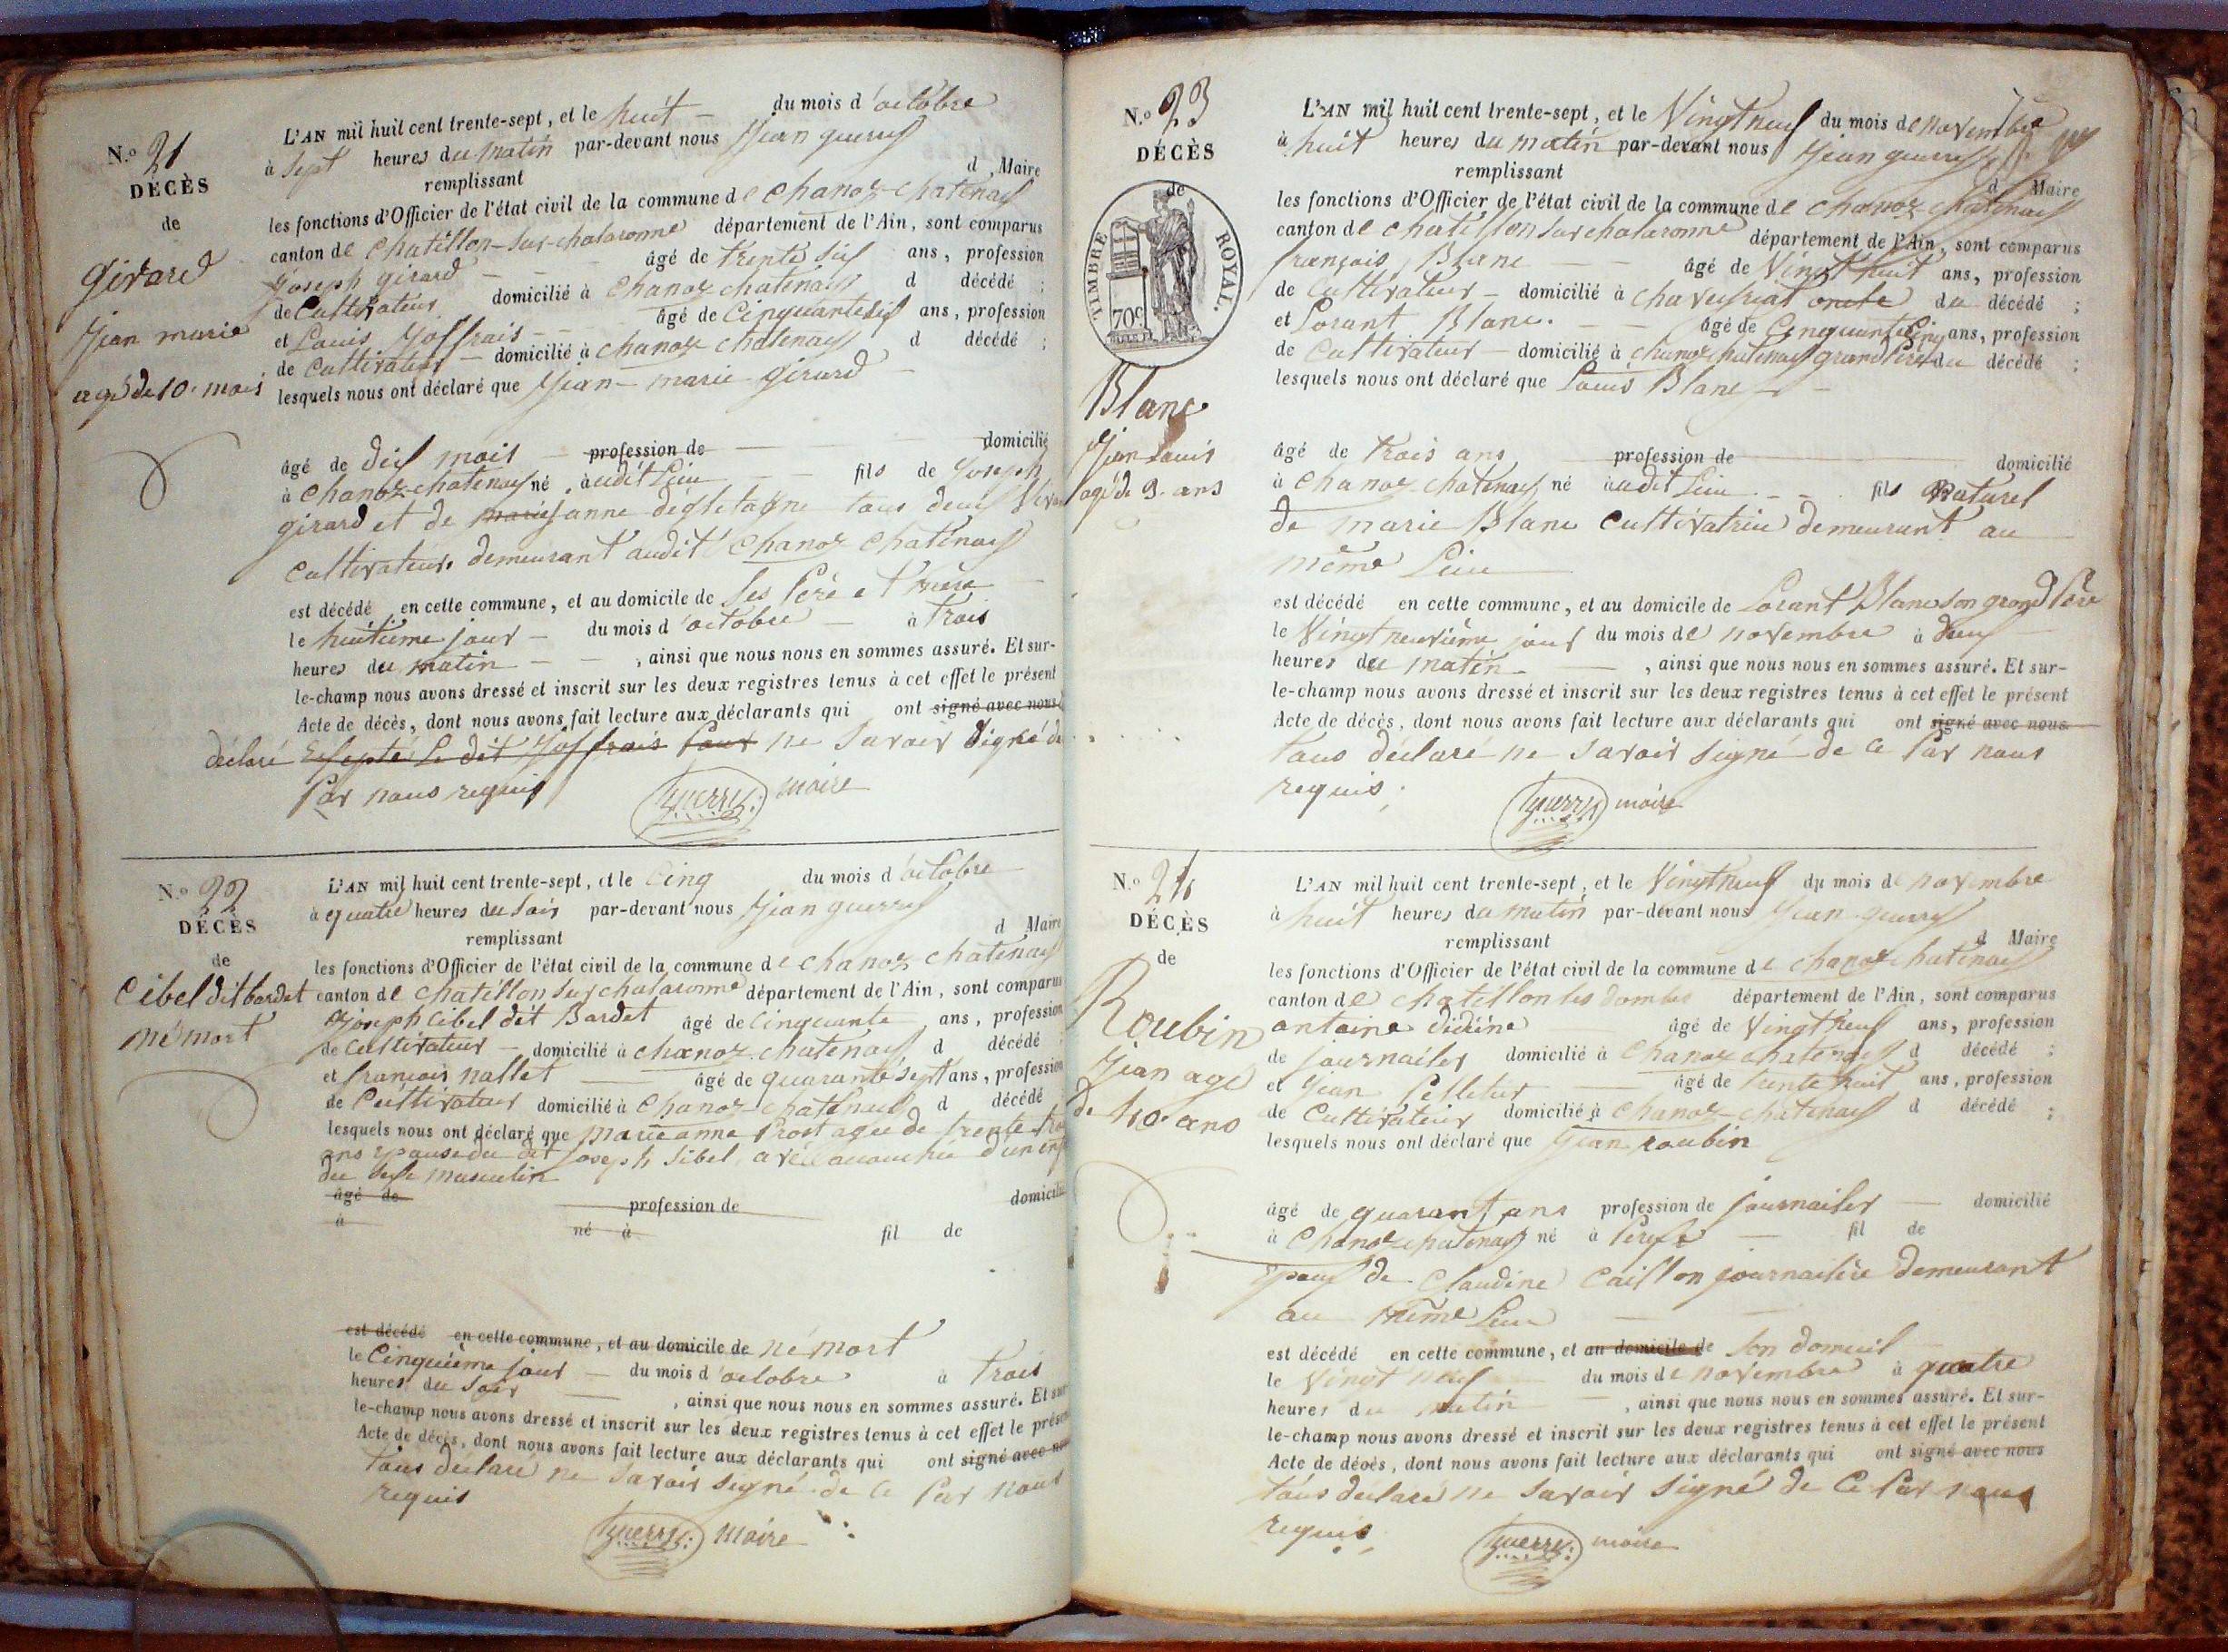 N.º 21
DÉCÈS
de
Girard
Jean marie
agé de 10. mois
L'AN mil huit cent trente-sept, et le huit du mois d'octobre
à sept heures du matin par-devant nous Jean guerry
d Maire
remplissant
les fonctions d'Officier de l'état civil de la commune de chanoz-chatenay
canton de chatillon-sur-chalaronne département de l'Ain, sont comparus
Joseph girard âgé de trente six ans, profession
de Cultivateur domicilié à chanoz chatenay d décédé ;
et Louis Joffrais âgé de Cinquante six ans, profession
de Cultivateur domicilié à chanoz chatenay d décédé ;
lesquels nous ont déclaré que Jean-marie girard
âgé de dix mois profession de domicilié
à chanoz-chatenay né audit Lieu fils de Joseph
girard et de marie janne tous deux
Cultivateurs demeurant audit chanoz chatenay
est décédé en cette commune, et au domicile de ses Père et mère
le huitieme jour du mois d'octobre à trois
heures du matin , ainsi que nous nous en sommes assuré. Et sur-
le-champ nous avons dressé et inscrit sur les deux registres tenus à cet effet le présent
Acte de décès, dont nous avons fait lecture aux déclarants qui ont signé avec nous
déclaré Excepté Le dit Joffrais pour ne savoir signé de
Par nous requis
guerry maire
N.º 22
DÉCÈS
de
Cibel dit bardet
né mort
L'AN mil huit cent trente-sept, et le Cinq du mois d'octobre
à quatre heures du soir par-devant nous Jean guerry
d Maire
remplissant
les fonctions d'Officier de l'état civil de la commune de chanoz chatenay
canton de chatillon sur chalaronne département de l'Ain, sont comparus
Joseph Cibel dit Bardet âgé de Cinquante ans, profession
de Cultivateur domicilié à chanoz-chatenay d décédé
et françois nallet âgé de quarante sept ans, profession
de Cultivateur domicilié à chanoz-chatenay d décédé
lesquels nous ont déclaré que marie anne Prost agée de trente trois
ans epouse du dit Joseph Sibel, avéc accouchée d'un enf
du sexe masculin
âgé de profession de domicilié
à né à fil de
est décédé en cette commune, et au domicile de né mort
le Cinquième jour du mois d'octobre à trois
heures du soir , ainsi que nous nous en sommes assuré. Et sur
le-champ nous avons dressé et inscrit sur les deux registres tenus à cet effet le présent
Acte de décès, dont nous avons fait lecture aux déclarants qui ont signé avec nous
tous déclaré ne savoir signé de ce Par nous
requis
guerry maire
N.º 23
DÉCÈS
de
TIMBRE ROYAL.
70c
Blanc
Jean Louis
agé de 3. ans
L'AN mil huit cent trente-sept, et le Vingt neuf du mois de novembre
à huit heures du matin par-devant nous Jean guerry
remplissant
d Maire
les fonctions d'Officier de l'état civil de la commune de chanoz chatenay
canton de chatillon sur chalaronne département de l'Ain, sont comparus
françois Blanc âgé de Vingt huit ans, profession
de Cultivateur domicilié à chaveyriat oncle du décédé ;
et Lorant Blanc. âgé de Cinquante Cinq ans, profession
de Cultivateur domicilié à chanoz chatenay grand Père du décédé ;
lesquels nous ont déclaré que Louis Blanc
âgé de trois ans profession de domicilié
à chanoz-chatenay né audit Lieu fils naturel
de marie Blanc Cultivatrice demeurant au
même Lieu
est décédé en cette commune, et au domicile de Lorant Blanc son grand Père
le Vingt neuvième jour du mois de novembre à deux
heures du matin , ainsi que nous nous en sommes assuré. Et sur-
le-champ nous avons dressé et inscrit sur les deux registres tenus à cet effet le présent
Acte de décès, dont nous avons fait lecture aux déclarants qui ont signé avec nous
tous déclaré ne savoir signé de ce Par nous
requis;
guerry maire
N.º 24
DÉCÈS
de
Roubin
Jean agé
de 40. ans
L'AN mil huit cent trente-sept, et le Vingt neuf du mois de novembre
à huit heures du matin par-devant nous Jean guerry
remplissant
d Maire
les fonctions d'Officier de l'état civil de la commune de chanoz chatenay
canton de chatillon les dombes département de l'Ain, sont comparus
antoine âgé de Vingt neuf ans, profession
de journalier domicilié à chanoz chatenay d décédé ;
et Jean Pelletier âgé de trente huit ans, profession
de Cultivateur domicilié à chanoz-chatenay d décédé ;
lesquels nous ont déclaré que Jean roubin
âgé de quarant, ans profession de journalier domicilié
à chanoz chatenay né à fil de
Epoux de Claudine Caillon journalière demeurant
au même Lieu
est décédé en cette commune, et au domicile de son domicil
le Vingt neuf du mois de novembre à quatre
heures du matin , ainsi que nous nous en sommes assuré. Et sur-
le-champ nous avons dressé et inscrit sur les deux registres tenus à cet effet le présent
Acte de décès, dont nous avons fait lecture aux déclarants qui ont signé avec nous
tous déclaré ne savoir signé de ce Par nous
requis,
guerry maire